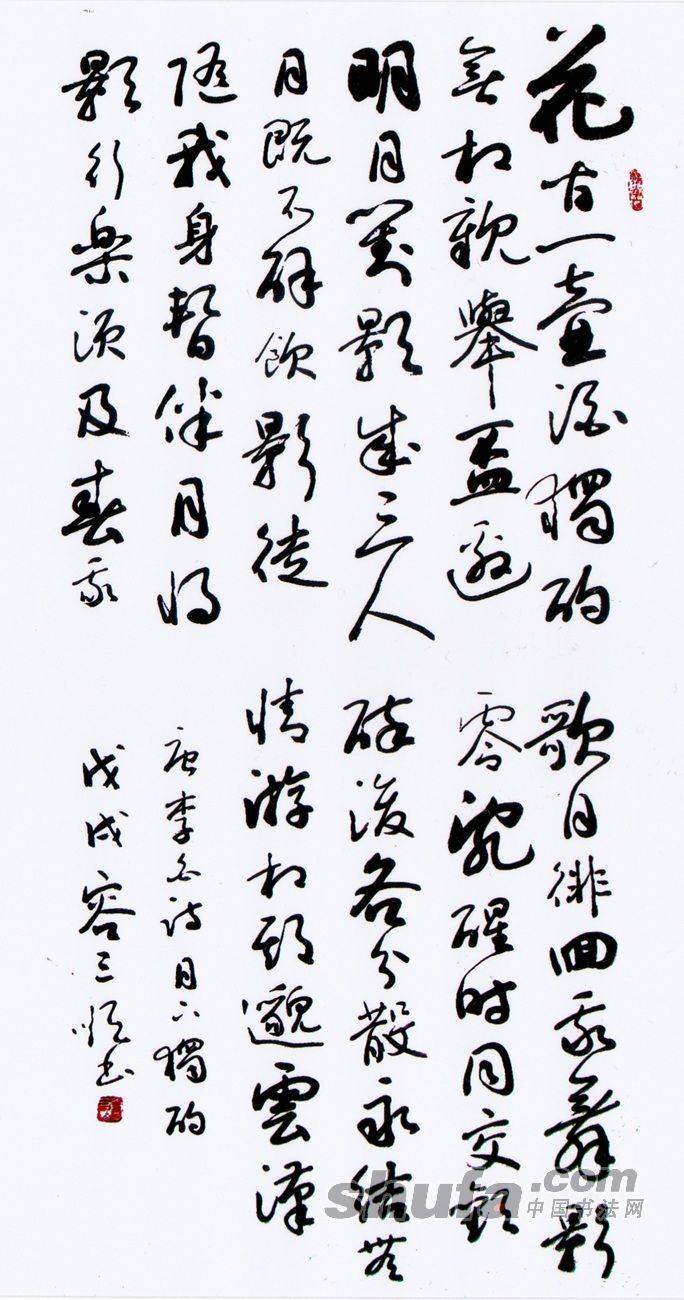 花間一壺酒獨酌
無相親舉盃邀
明月對影成三人
月既不解飲影徒
隨我身暫伴月將
影行樂須及春我
歌月徘回我舞影
零亂醒時同交歡
醉後各分散永結無
情游相期邈雲漢
唐李白詩月下獨酌
戊戌容三順書
shufa.com
中国书法网